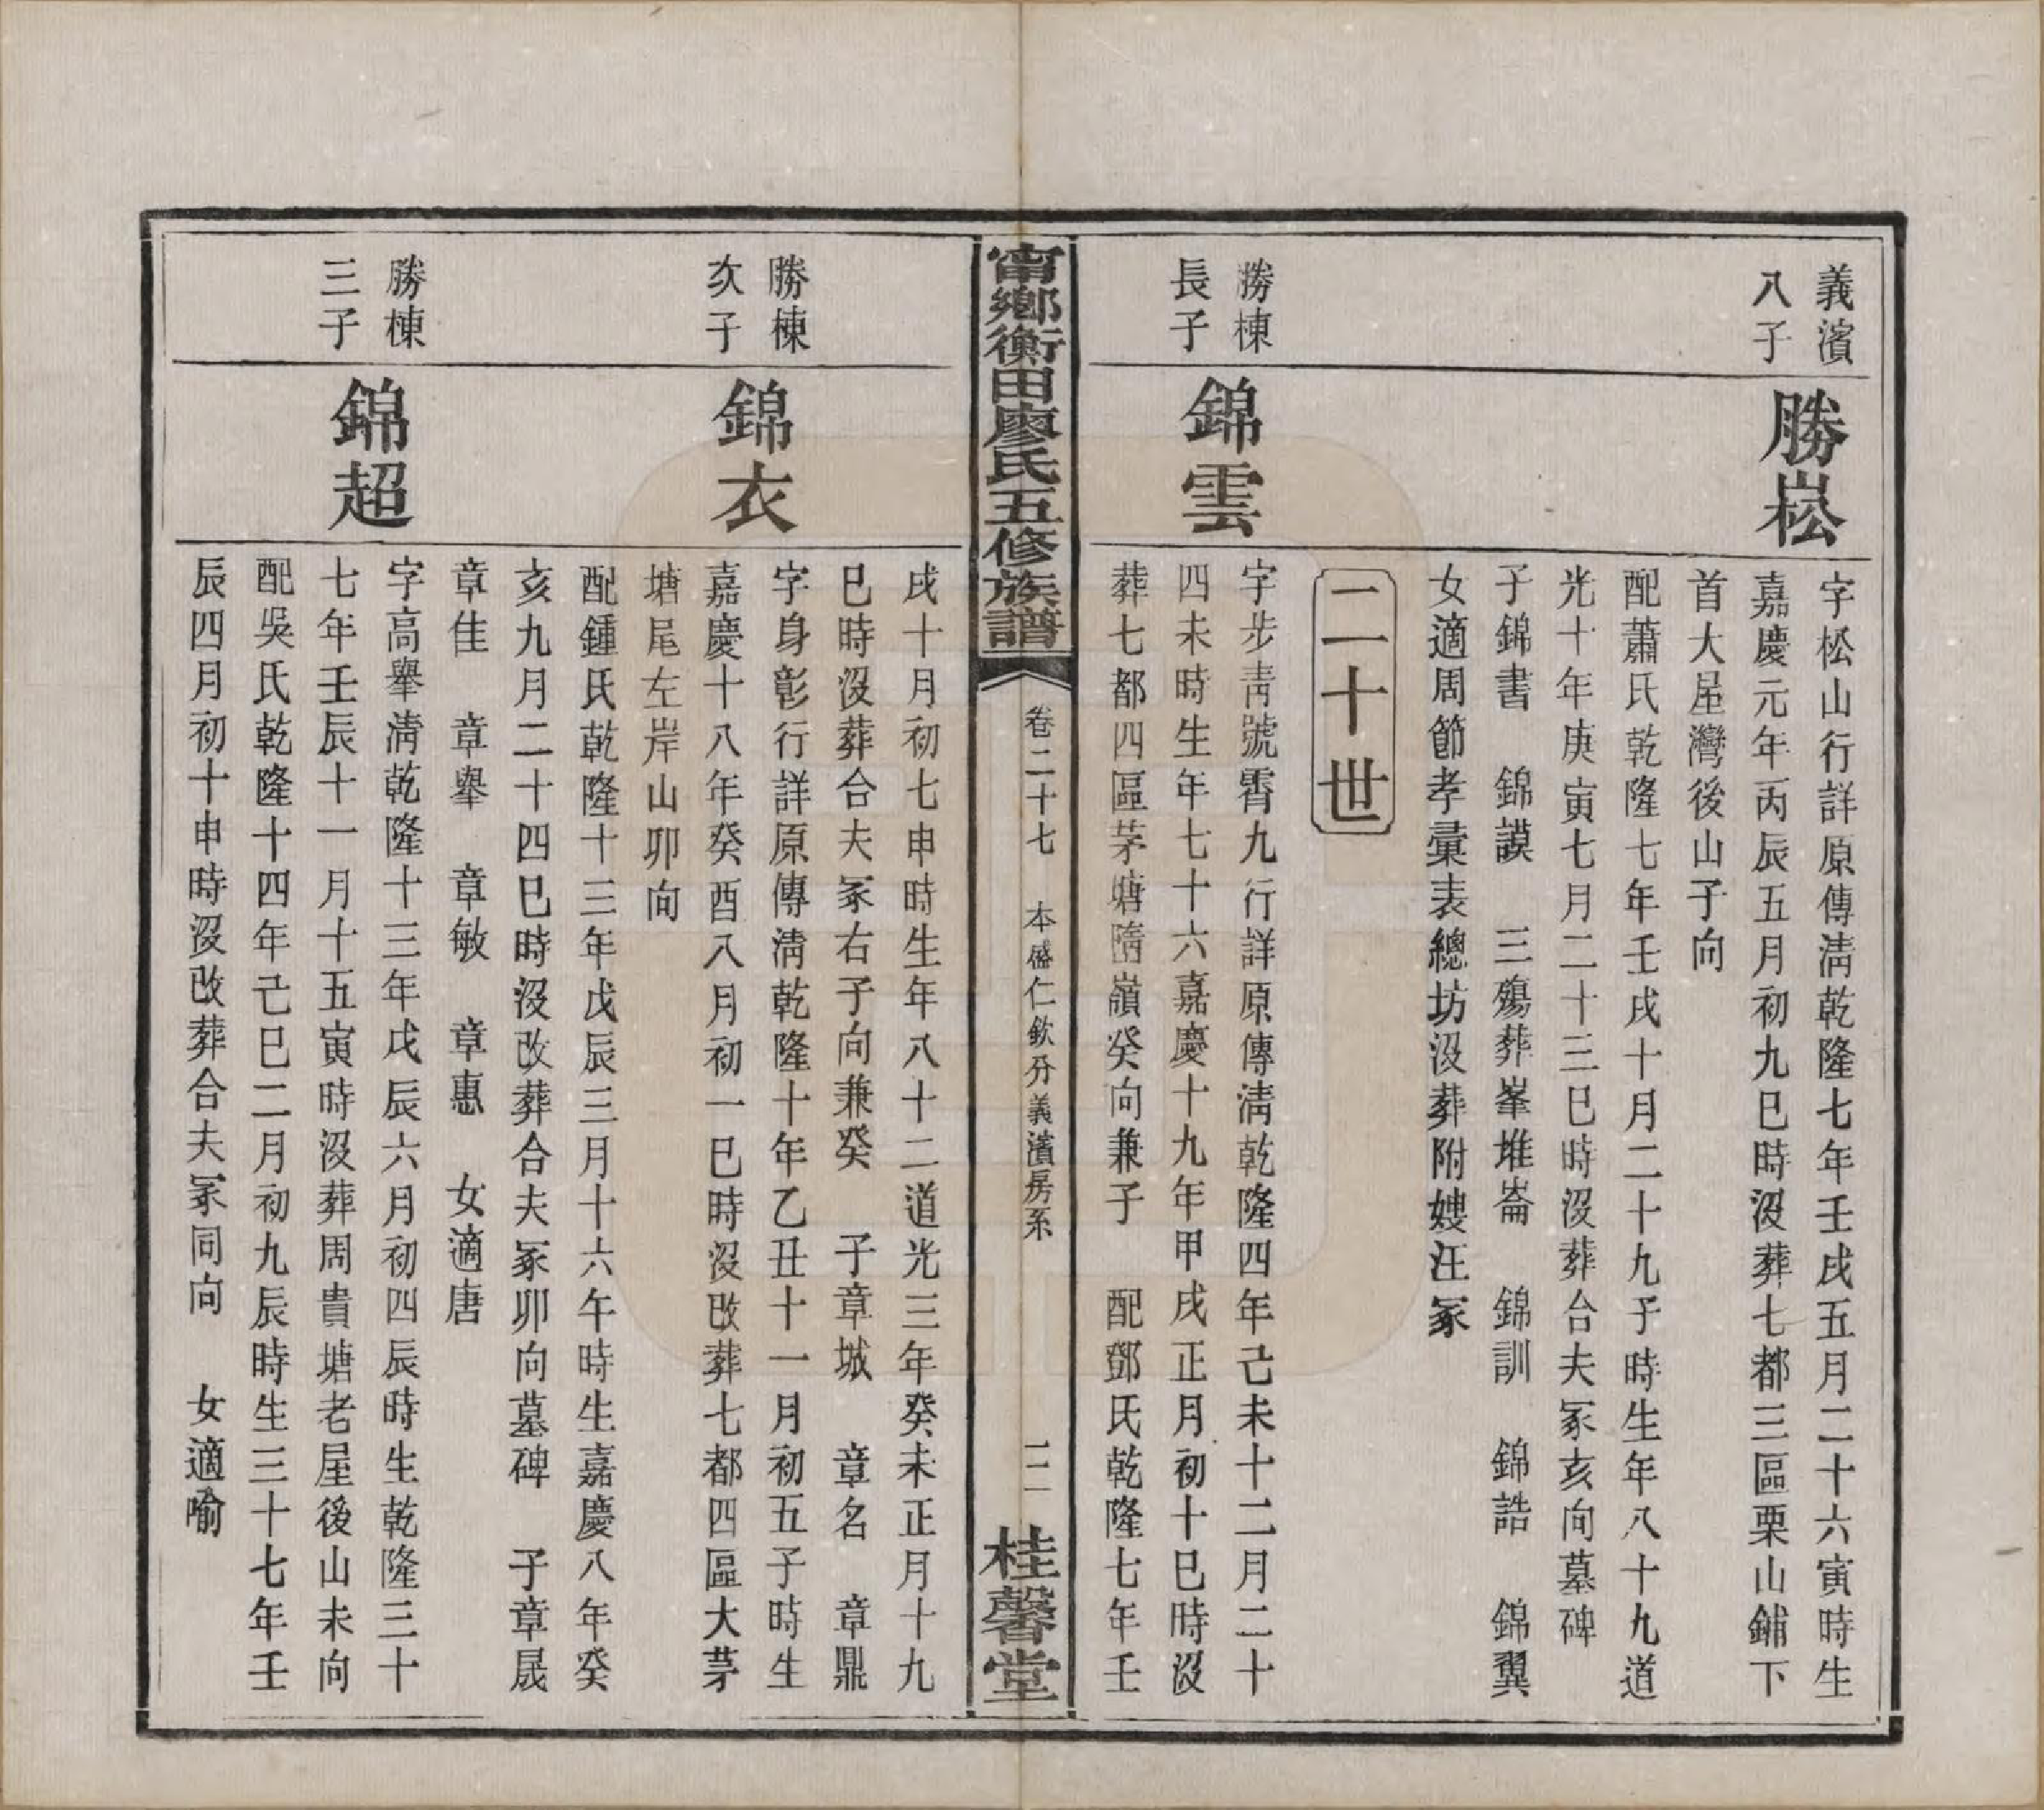 義濱
八子
勝崧
字松山行詳原傳淸乾隆七年壬戌五月二十六寅時生
嘉慶元年丙辰五月初九巳時沒葬七都三區栗山鋪下
首大屋灣後山子向
配蕭氏乾隆七年壬戌十月二十九子時生年八十九道
光十年庚寅七月二十三巳時沒葬合夫冢亥向墓碑
子錦書　錦謨　三殤葬峯堆崙　錦訓　錦誥　錦翼
女適周節孝彙表總坊沒葬附嫂汪冢
二十世
勝棟
長子
錦雲
字步靑號霄九行詳原傳淸乾隆四年己未十二月二十
四未時生年七十六嘉慶十九年甲戌正月初十巳時沒
葬七都四區茅塘隋嶺癸向兼子　配鄧氏乾隆七年壬
甯鄉衡田廖氏五修族譜
卷二十七　本盛仁欽分義濱房系
二二
桂馨堂
戌十月初七申時生年八十二道光三年癸未正月十九
巳時沒葬合夫冢右子向兼癸　子章城　章名　章鼎
勝棟
次子
錦衣
字身彰行詳原傳淸乾隆十年乙丑十一月初五子時生
嘉慶十八年癸酉八月初一巳時沒改葬七都四區大茅
塘尾左岸山卯向
配鍾氏乾隆十三年戊辰三月十六午時生嘉慶八年癸
亥九月二十四巳時沒改葬合夫冢卯向墓碑　子章晟
章佳　章舉　章敏　章惠　女適唐
勝棟
三子
錦超
字高舉淸乾隆十三年戊辰六月初四辰時生乾隆三十
七年壬辰十一月十五寅時沒葬周貴塘老屋後山未向
配吳氏乾隆十四年己巳二月初九辰時生三十七年壬
辰四月初十申時沒改葬合夫冢同向　女適喻